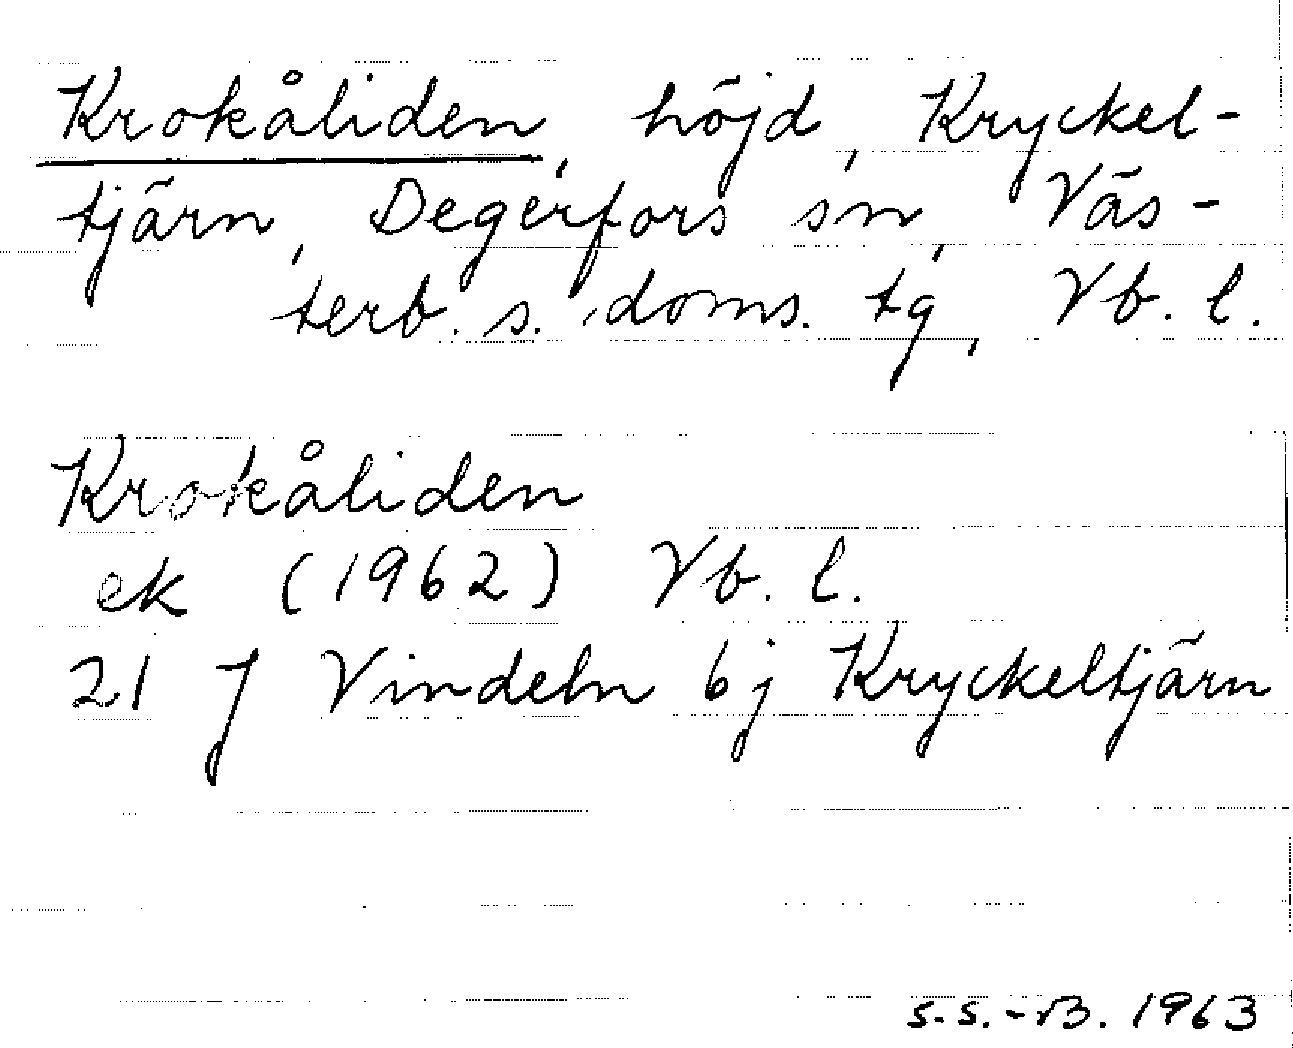 Krokåliden, höjd, Kryckel-
tjärn, Degerfors sn, Väs-
terb. s. doms. tg, Vb. l.
Krokåliden
ek (1962) Vb. l.
21 J Vindeln 6j Kryckeltjärn
S.S.-B. 1963